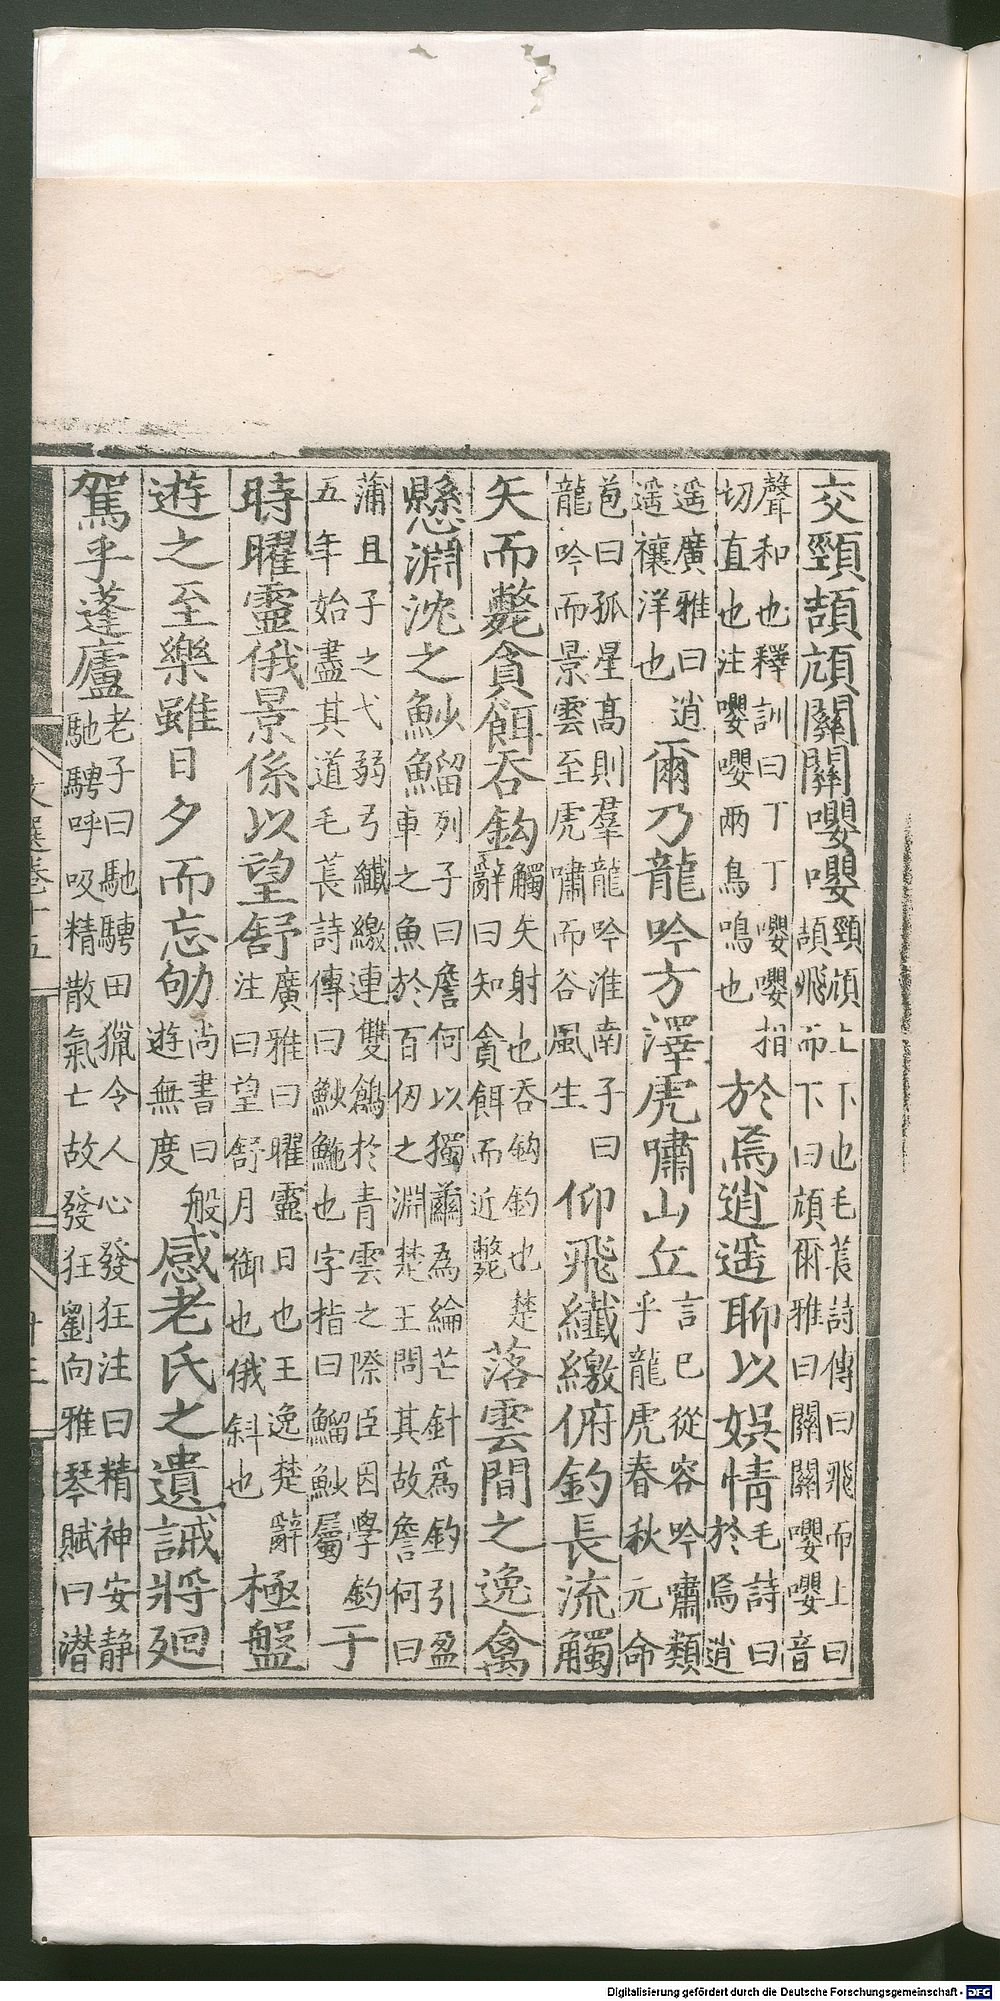 交頸頡頏關關嚶嚶頸頏上下也毛萇詩傳曰飛而上曰頡飛而下曰頏爾雅曰關關嚶嚶音
聲和也釋訓曰丁丁嚶嚶相切直也注嚶嚶兩鳥鳴也於焉逍遥聊以娱情毛詩曰於焉逍
遥廣雅曰逍遥禳洋也爾乃龍吟方澤虎嘯山丘言巳從容吟嘯類乎龍虎春秋元命
苞曰孤星高則羣龍吟淮南子曰龍吟而景雲至虎嘯而谷風生仰飛纖繳俯釣長流觸
矢而斃貪餌吞鈎觸矢射也吞鈎釣也楚辭曰知貪餌而近斃落雲間之逸禽
懸淵沈之魦鰡列子曰詹何以獨繭為綸芒針爲釣引盈車之魚於百仞之淵楚王問其故詹何曰
蒲且子之弋弱弓纖繳連雙鶬於青雲之際臣因學釣五年始盡其道毛萇詩傳曰魦鮀也字指曰鰡魦屬于
時曜靈俄景係以望舒廣雅曰曜靈日也王逸楚辭注曰望舒月御也俄斜也極盤
遊之至樂雖日夕而忘劬尚書曰般遊無度感老氏之遺誡將廻
駕乎蓬廬老子曰馳騁田獵令人心發狂注曰精神安静馳騁呼吸精散氣亡故發狂劉向雅琴賦曰潛
文選卷十五
Digitalisierung gefördert durch die Deutsche Forschungsgemeinschaft - DFG